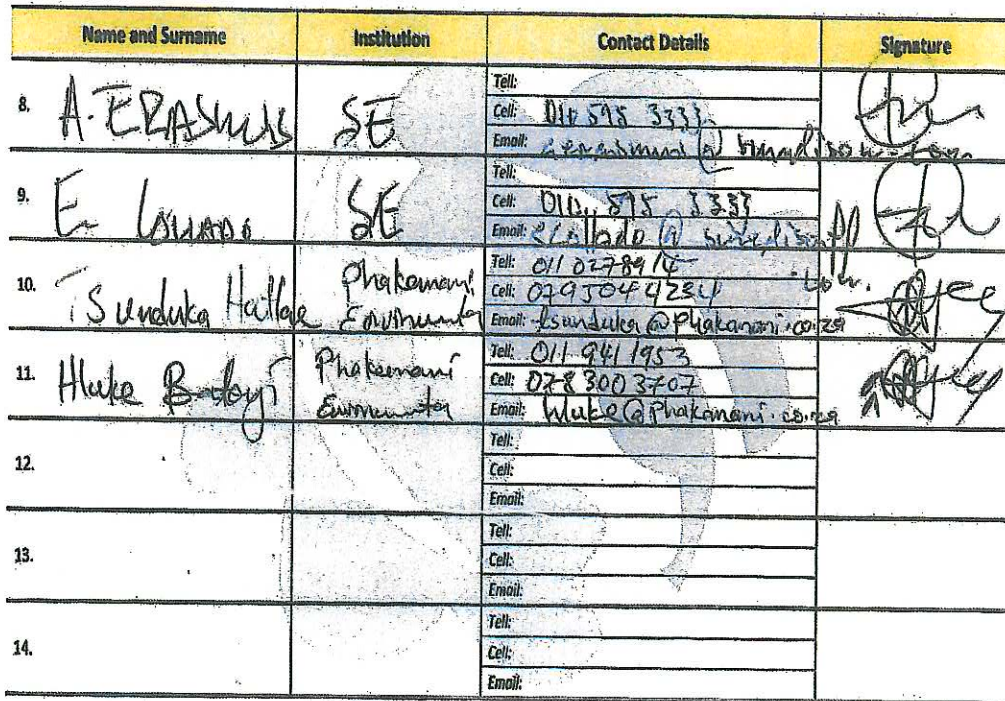 Name and Surname Institution Contact Details Signature
8. A. ERASMUS SE
Tell:
Cell: 010 595 3333
Email: @
9. E. SE
Tell:
Cell: 010 595 3333
Email: @
10. Tsunduka Hatlane Phakamani
Tell: 011 0278914
Cell: 0795044234
Email: tsunduka@phakamani.co.za
11. Hluke Phakamani
Tell: 011 941 1953
Cell: 078 300 3707
Email: hluke@Phakamani.co.za
12.
Tell:
Cell:
Email:
13.
Tell:
Cell:
Email:
14.
Tell:
Cell:
Email: